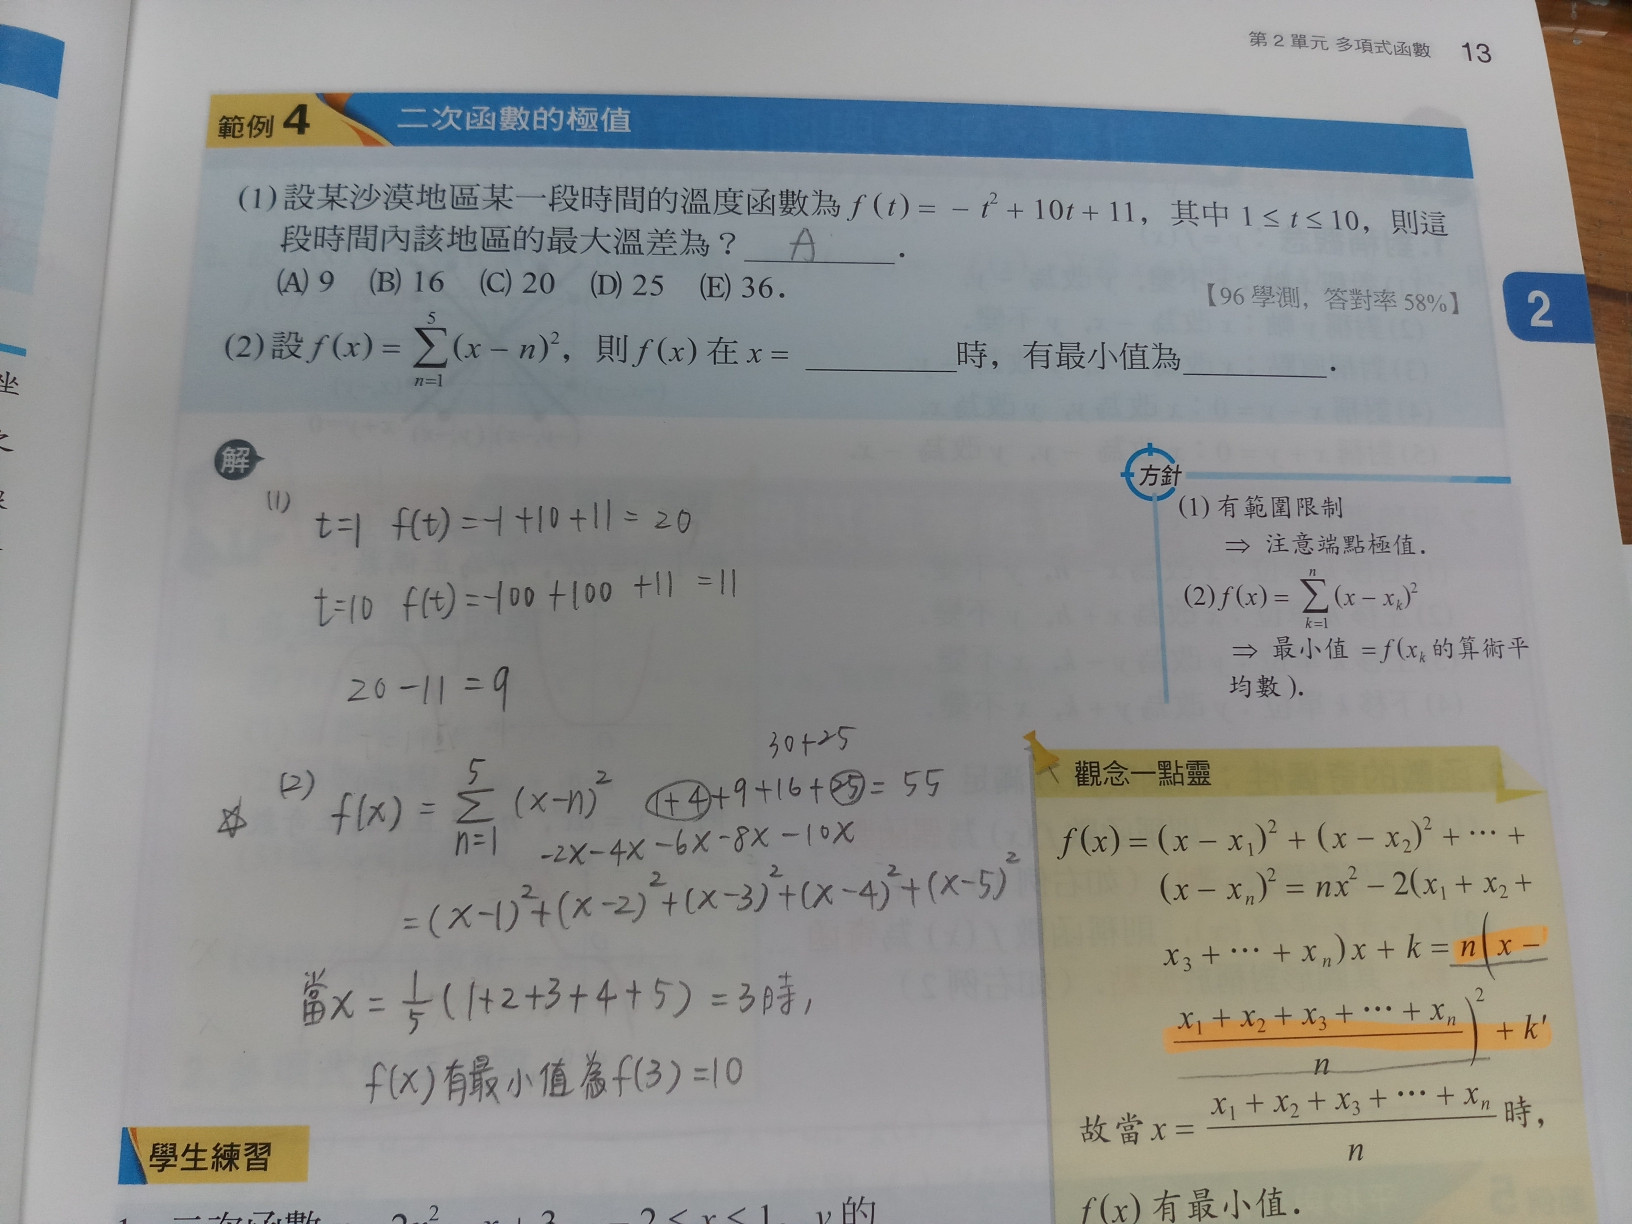 第 2 單元 多項式函數 13
範例 4 二次函數的極值
(1) 設某沙漠地區某一段時間的溫度函數為 f(t) = −t² + 10t + 11，其中 1 ≤ t ≤ 10，則這
段時間內該地區的最大溫差為？ A ．
(A) 9 (B) 16 (C) 20 (D) 25 (E) 36．
【96 學測，答對率 58%】
2
(2) 設 f(x) = ∑_{n=1}^{5} (x − n)²，則 f(x) 在 x = ______時，有最小值為______．
解
(1)
t=1 f(t) = -1+10+11 = 20
t=10 f(t) = -100+100+11 = 11
20-11 = 9
方針
(1) 有範圍限制
⇒ 注意端點極值．
(2) f(x) = ∑_{k=1}^{n} (x − x_k)²
⇒ 最小值 = f(x_k 的算術平
均數)．
30+25
(2) f(x) = ∑_{n=1}^{5} (x-n)² 1+4+9+16+25 = 55
-2x-4x-6x-8x-10x
= (x-1)²+(x-2)²+(x-3)²+(x-4)²+(x-5)²
當x = 1/5 (1+2+3+4+5) = 3時,
f(x)有最小值為f(3)=10
觀念一點靈
f(x) = (x − x₁)² + (x − x₂)² + ⋯ +
(x − xₙ)² = nx² − 2(x₁ + x₂ +
x₃ + ⋯ + xₙ)x + k = n(x −
(x₁ + x₂ + x₃ + ⋯ + xₙ)/n)² + k′
故當 x = (x₁ + x₂ + x₃ + ⋯ + xₙ)/n 時，
f(x) 有最小值．
學生練習